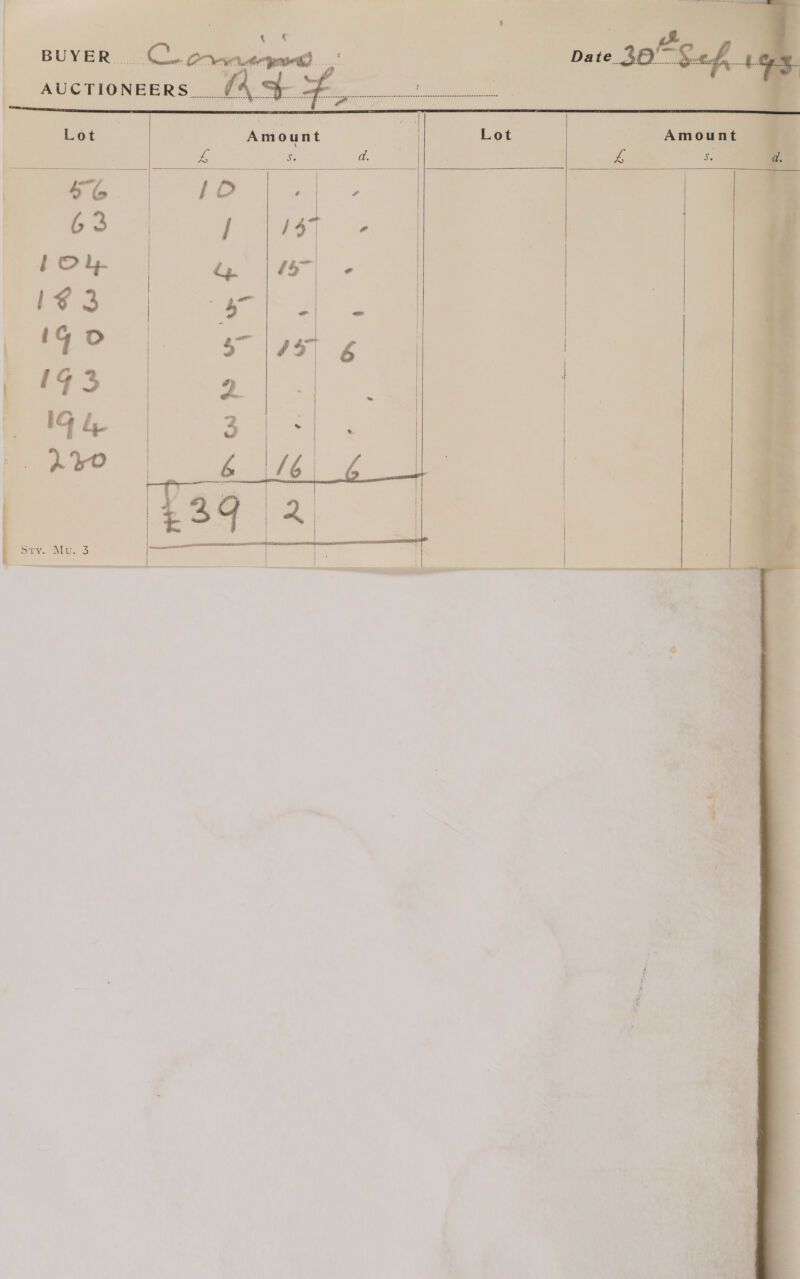 BUYER
Date 30th Sep. 193
AUCTIONEERS
Lot Amount Lot Amount
£ s. d. £ s. d.
56 10 - -
63 1 15 -
104 4 15 -
183 5 - -
190 5 15 6
193 2 - -
194 3 - -
220 6 16 6
£39 2
Stv. Mu. 3